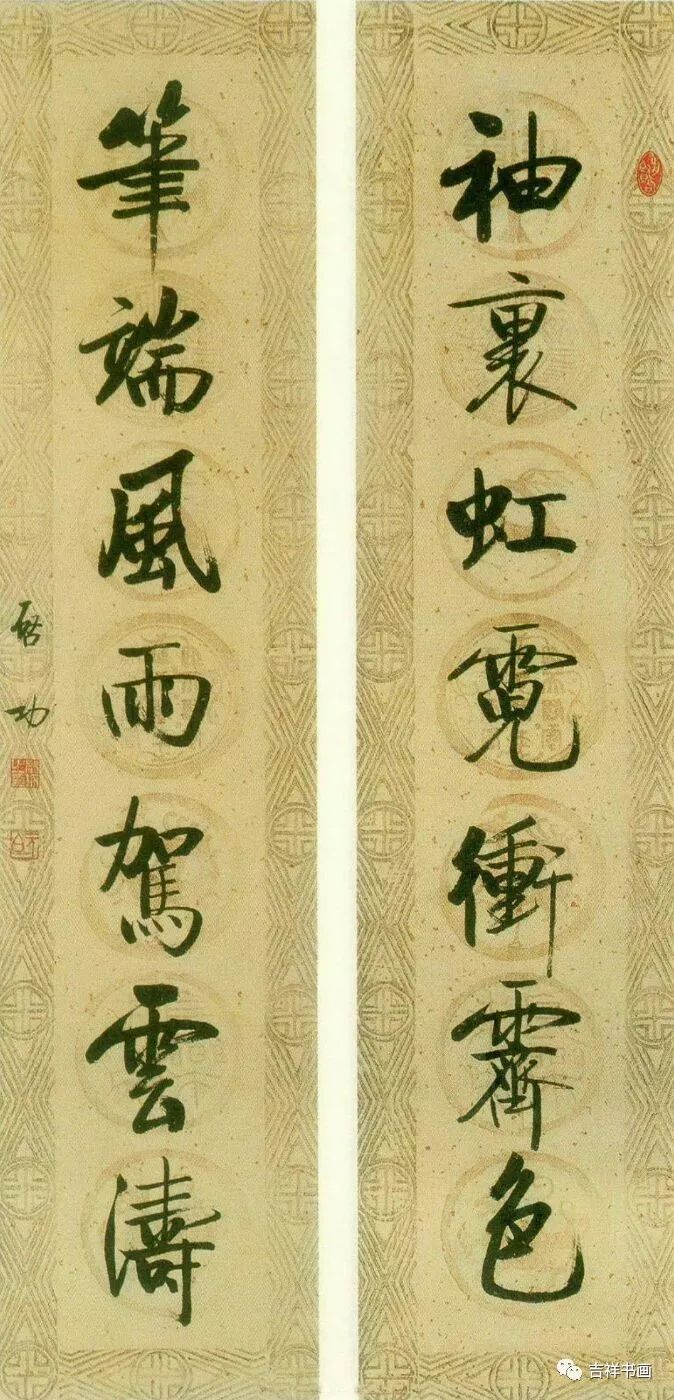 袖裏虹霓衝霽色
筆端風雨駕雲濤
啓功
吉祥书画